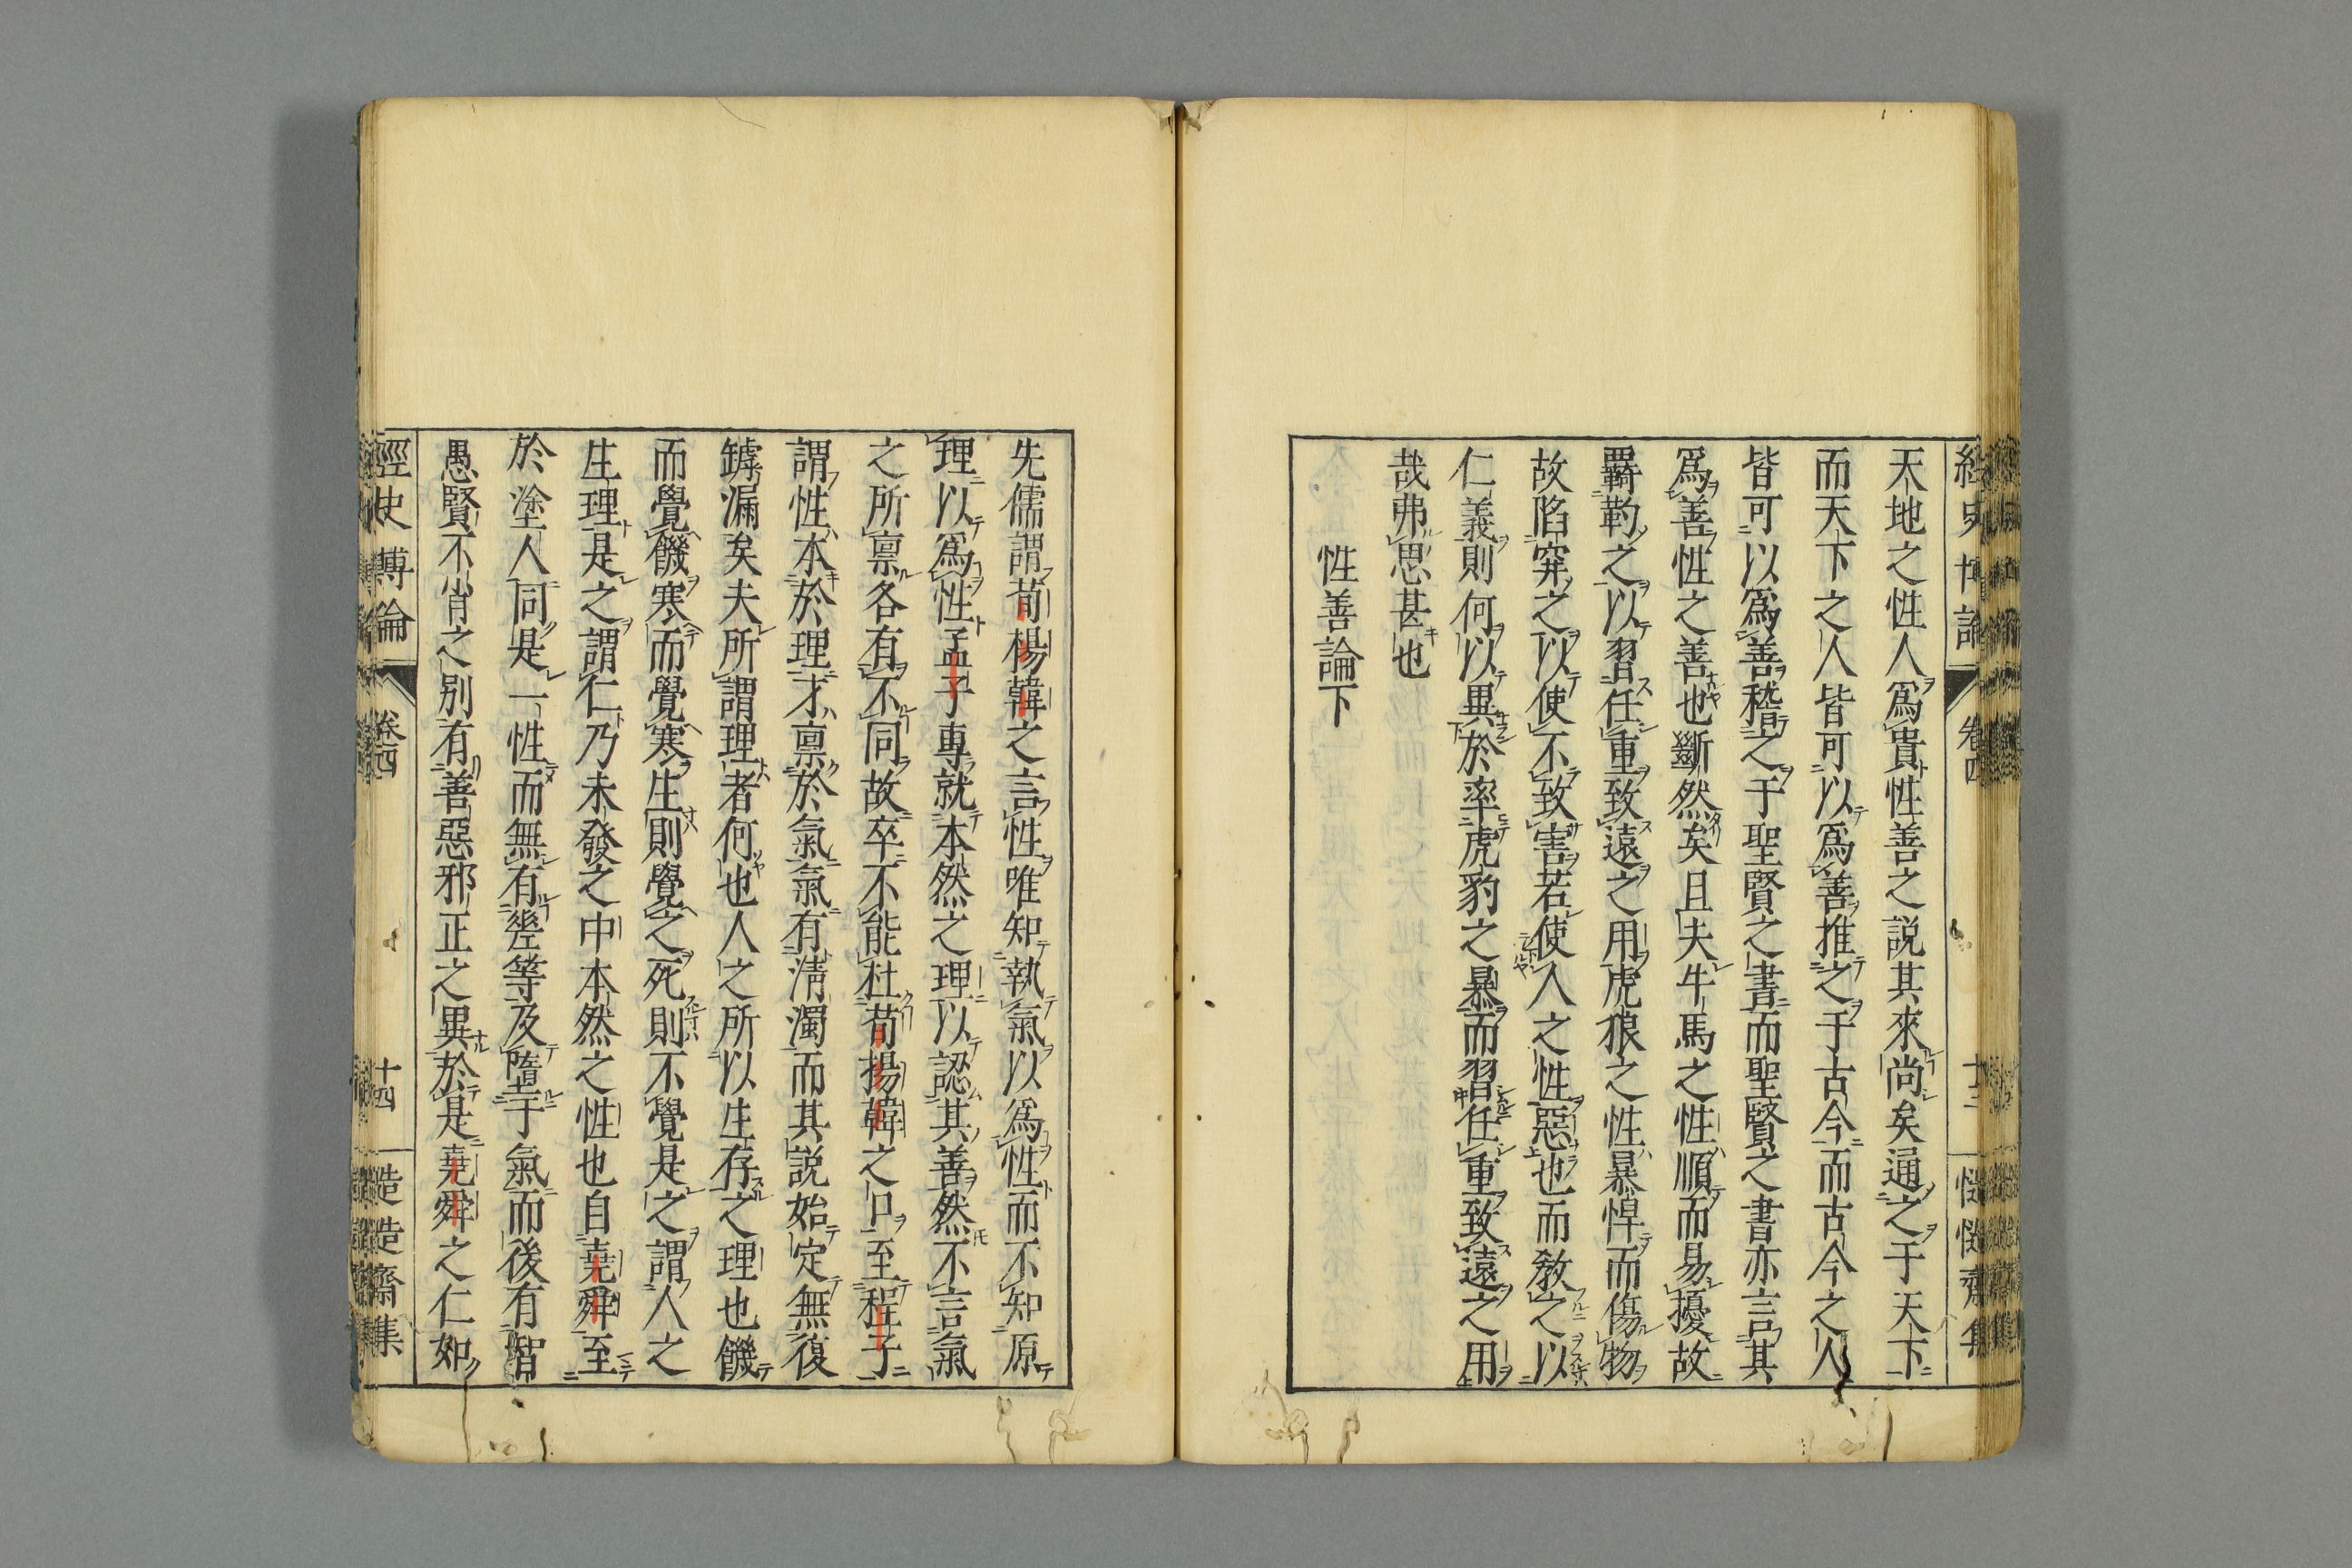 天地之性人爲貴性善之説其來尚矣通之于天下
而天下之人皆可以爲善推之于古今而古今之人
皆可以爲善稽之于聖賢之書而聖賢之書亦言其
爲善性之善也斷然矣且夫牛馬之性順而易擾故
羈靮之以習任重致遠之用虎狼之性暴悍而傷物
故陷穽之以使不致害若使人之性惡也而敎之以
仁義則何以異於率虎豹之暴而習任重致遠之用
哉弗思甚也
性善論下
先儒謂荀楊韓之言性唯知執氣以爲性而不知原
理以爲性孟子專就本然之理以認其善然不言氣
之所禀各有不同故卒不能杜荀揚韓之口至程子
謂性本於理才禀於氣氣有淸濁而其説始定無復
罅漏矣夫所謂理者何也人之所以生存之理也饑
而覺饑寒而覺寒生則覺之死則不覺是之謂人之
生理是之謂仁乃未發之中本然之性也自堯舜至
於塗人同是一性而無有㡬等及墮于氣而後有智
愚賢不肖之別有善惡邪正之異於是堯舜之仁如
經史博論 卷四 十四 慥慥齋集